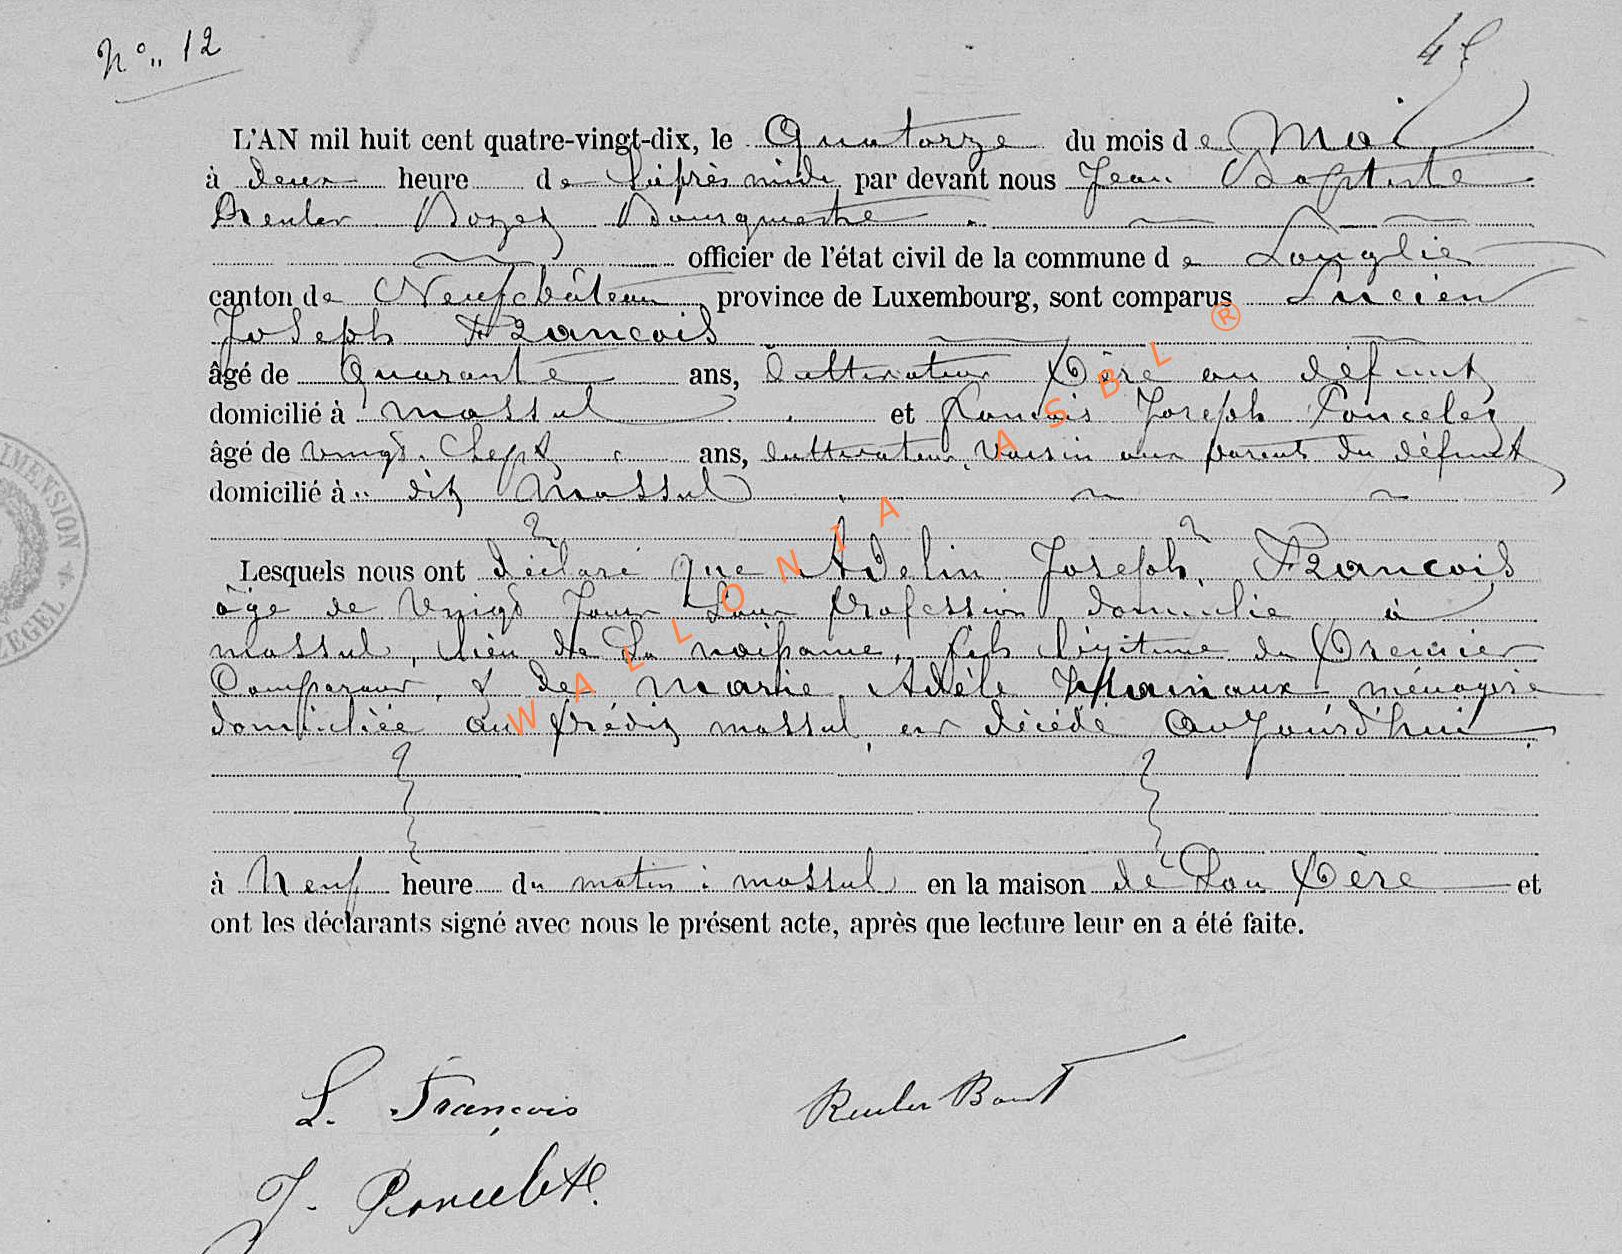 N° 12
45
L'AN mil huit cent quatre-vingt-dix, le Quatorze du mois de Mai
à deux heure de l'après midi, par devant nous Jean Baptiste
Reuler Bourgmestre
officier de l'état civil de la commune de Longlier
canton de Neufchâteau, province de Luxembourg, sont comparus Lucien
Joseph François
âgé de Quarante ans, Cultivateur Père au défunt
domicilié à Massul et François Joseph Poncelet
âgé de vingt-Chept ans, Cultivateur, Voisin aux parents du défunt
domicilié à dit Massul
Lesquels nous ont déclaré que Adelin Joseph François
âge de Vingt Jour Sans profession, domicilie à
Massul, lieu de Sa naissance, fils légitime du Premier
Comparant, & de Marie Adèle Hainaux ménagère
domiciliée au prédit massul, est décédé Aujourd'hui
à Neuf heure du matin à massul en la maison de Son Père et
ont les déclarants signé avec nous le présent acte, après que lecture leur en a été faite.
L. François
Reuler
J. Poncelet
DIMENSION
ZEGEL
WALLONIA ASBL ®